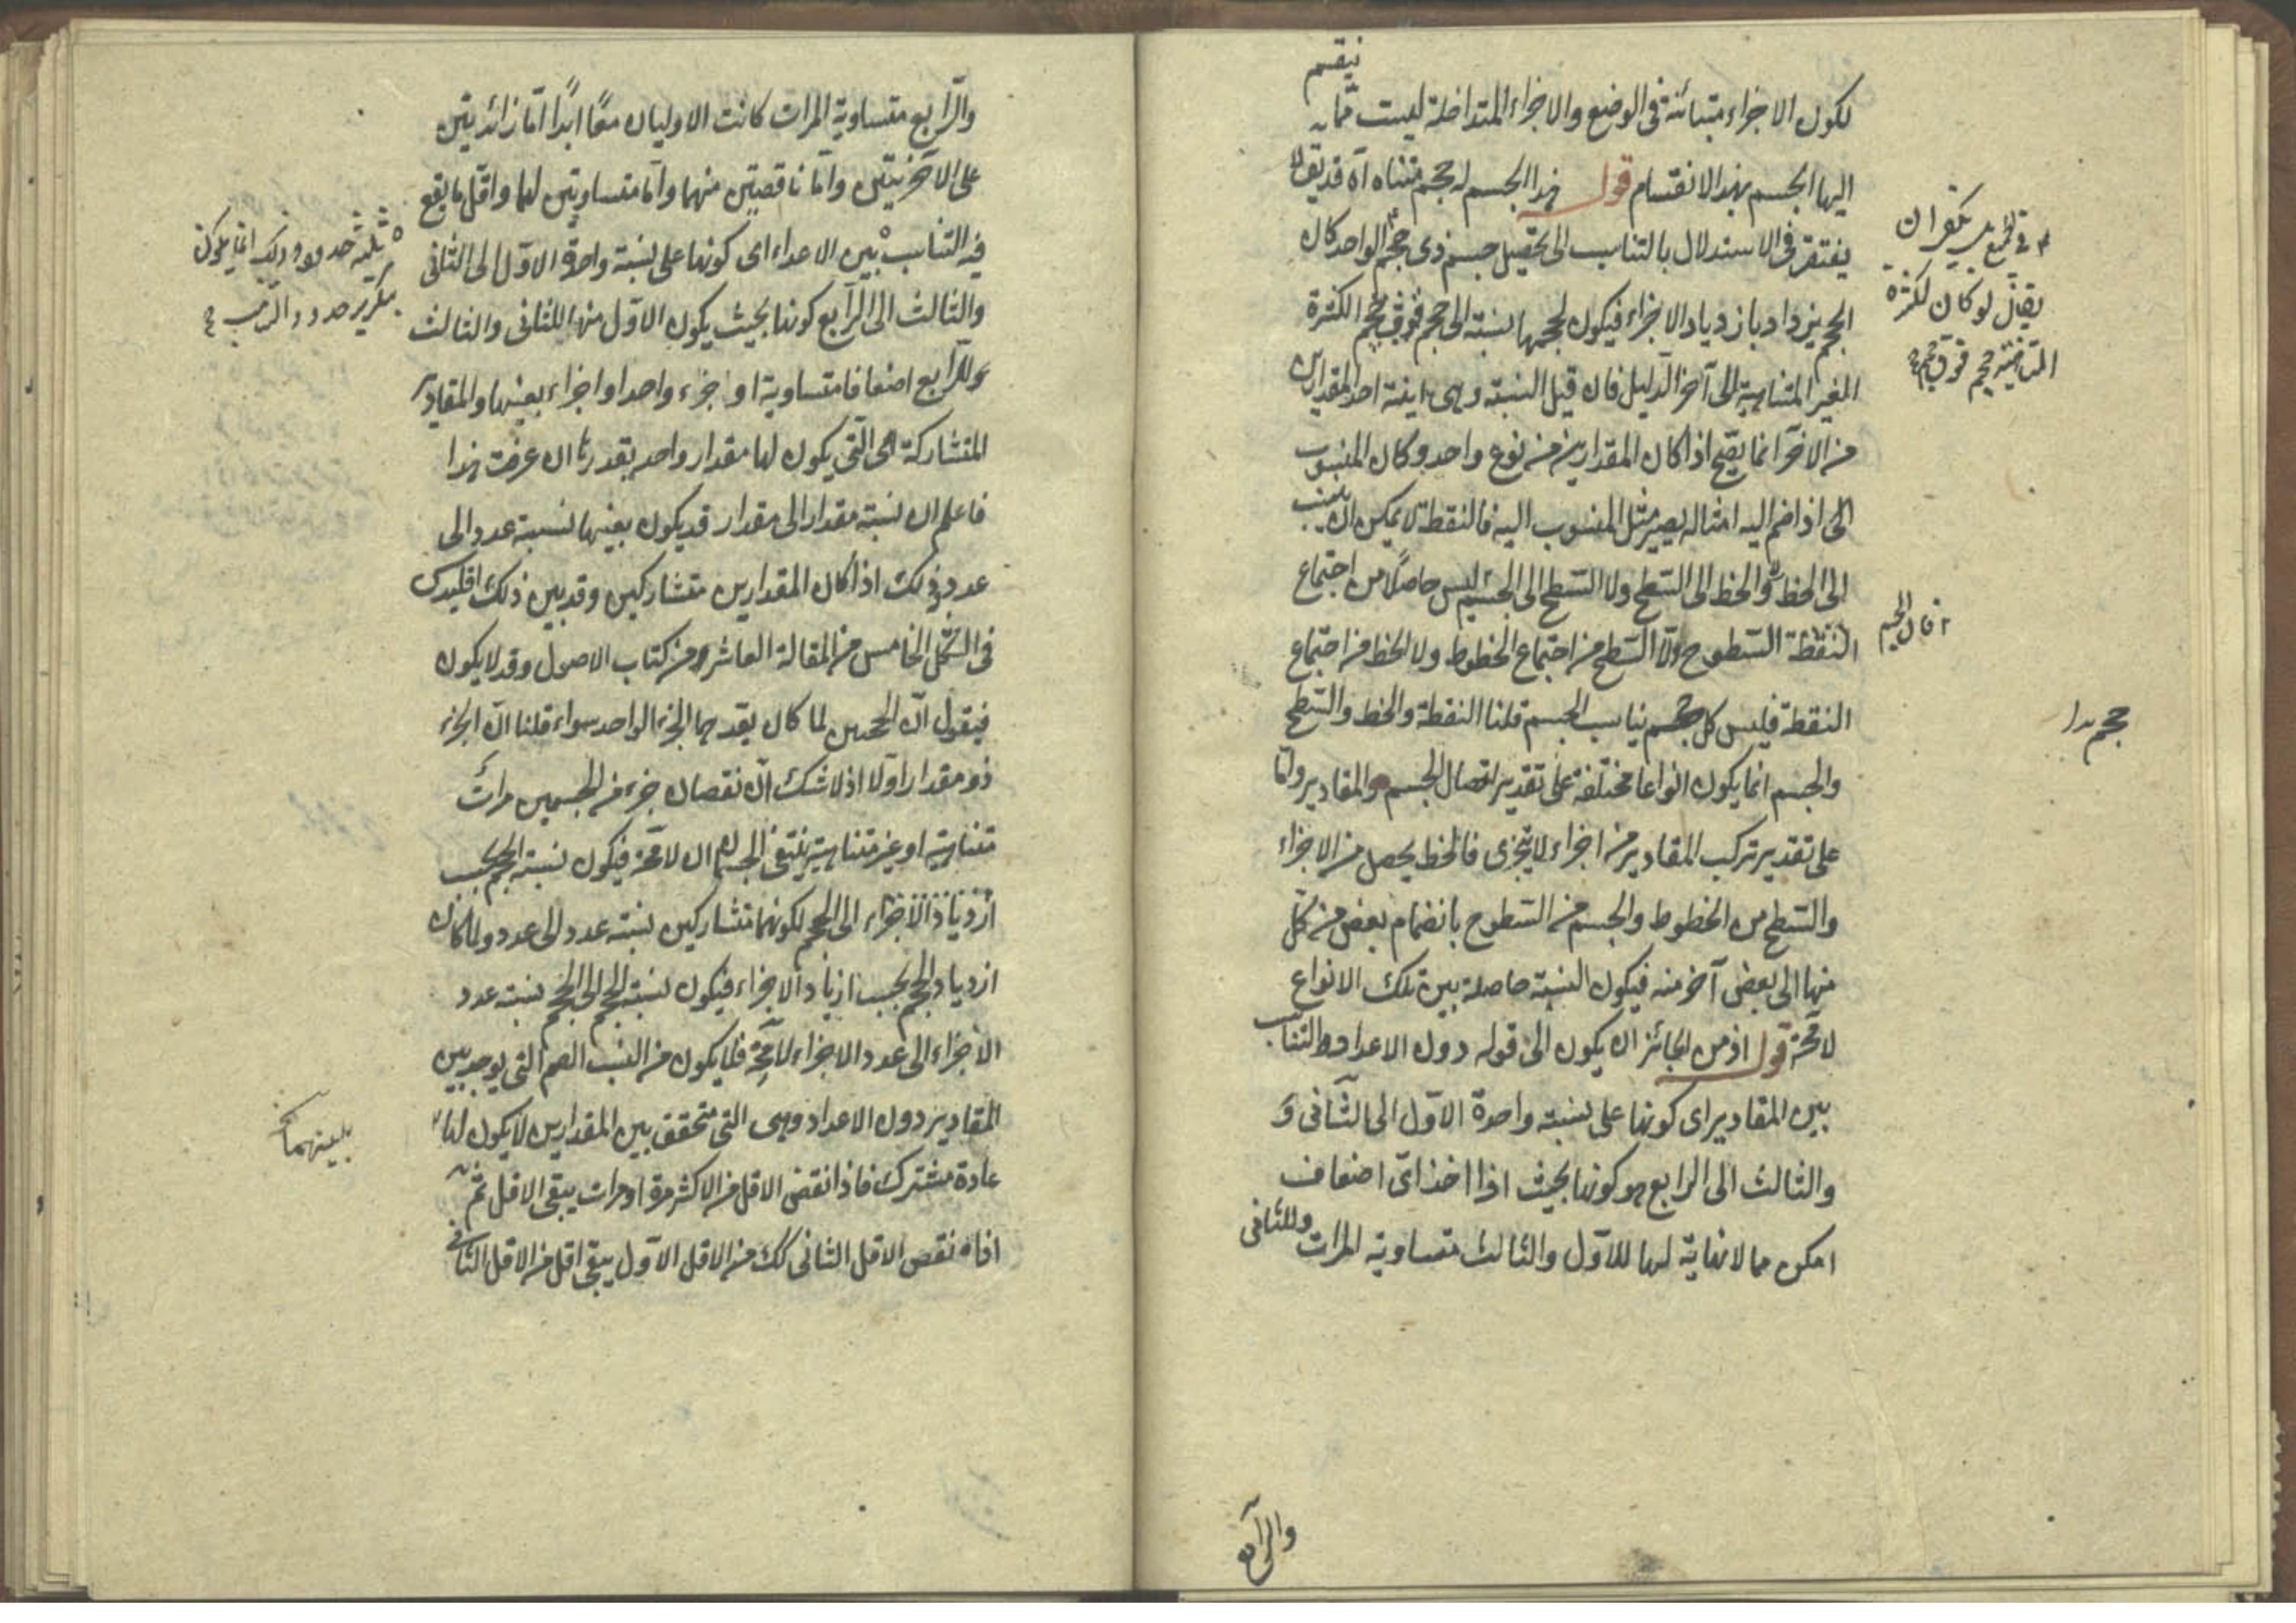 ينقسم
لكون الاجزاء متبائنة فى الوضع والاجزاء المتداخلة ليست مما
اليها الجسم بهذا الانقسام قوله فهذا الجسم له حجم متناه آه قد يق لا
يفتقر فى الاستدلال بالتناسب الى تحصيل جسم ذى حجم الواحد كان
الحجم يزداد بازدياد الاجزاء فيكون لحجمها نسبة الى حجم فوق حجم الكثرة
الغير المتناهية الى آخر الدليل فان قيل النسبة وهى اينة احد المقدارين
من الآخر انما يصح اذا كان المقدارين من نوع واحد وكان المنسوب
الى اذا ضم اليه امثاله يصير مثل المنسوب اليه فالنقطة لا يمكن ان ينسب
الى الخط والخط الى السّطح ولا السّطح الى الجسم ليس حاصلًا من اجتماع
النقطة السّطوح ولا السّطح من اجتماع الخطوط ولا الخط من اجتماع
النقطة فليس كل حجم يناسب الجسم قلنا النقطة والخط والسّطح
والجسم انما يكون انواعا مختلفة على تقدير اتصال الجسم والمقادير وامّا
على تقدير تركب المقادير من اجزاء لا يتجزى فالخط يحصل من الاجزاء
والسّطح من الخطوط والجسم من السّطوح بانضمام بعض من كلّ
منها الى بعض آخر منه فيكون النسبة حاصلة بين تلك الانواع
لا محة قوله اذ من الجائز ان يكون الى قوله دون الاعداد التناسب
بين المقادير اى كونها على نسبة واحدة الاوّل الى الثّانى وَ
والثالث الى الرابع هو كونها بحيث اذا اخذ اىّ اضعاف
امكن مما لا نهاية لها للاوّل والثالث متساوية المرات وللثانى
يقال لو كان لكثرة
المتناهية حجم فوق حجم
فان الجسم
حجم
والرّابع
والرّابع متساوية المرات كانت الاوليان معًا ابدًا امّا زائديتين
على الآخريتين وامّا ناقصتين منهما وامّا متساويتين لهما واقلّ ما يقع
فيه التناسب بين الاعداء اى كونها على نسبة واحدة الاوّل الى الثّانى
والثالث الى الرّابع كونها بحيث يكون الاوّل منها للثانى والثالث
وللرّابع اضعافا متساوية او جزء واحدا او اجزاء بعينها والمقادير
المتشاركة هى الّتى يكون لها مقدار واحد يقدرها ان عرفت هذا
فاعلم ان نسبة مقدار الى مقدار قد يكون بعينها نسبة عدد الى
عدد وذلك اذا كان المقدارين متشاركين وقد بين ذلك اقليدس
فى الشّكل الخامس من المقالة العاشر من كتاب الاصول وقد لا يكون
فيقول انّ الحجمين لما كان يقدرهما الجزء الواحد سواء قلنا انّ الجزء
ذو مقدار اولا اذ لا شك انّ نقصان جزء من الجسمين مرات
متناهية او غير متناهية ينتفى الجسم ان لا محة فيكون نسبة الحجم بحسب
ازدياد الاجزاء الى الحجم لكونهما متشاركين نسبة عدد الى عدد ولما كان
ازدياد الحجم بحسب ازياد الاجزاء فيكون نسبة الحجم الى الحجم نسبة عدد
الاجزاء الى عدد الاجزاء لا محة فلا يكون من النسب الصم التى يوجد بين
المقادير دون الاعداد وهى التى تتحقق بين المقدارين لا يكون لها
عادة مشترك فاذا نقص الاقل من الاكثر مرة او مرات يبقى الاقل ثمّ
اذا نقص الاقل الثانى كك من الاقل الاوّل يبقى اقل من الاقل الثانى
ثلثة حدود وذلك انما يكون
بتكرير حدود
بعينهما